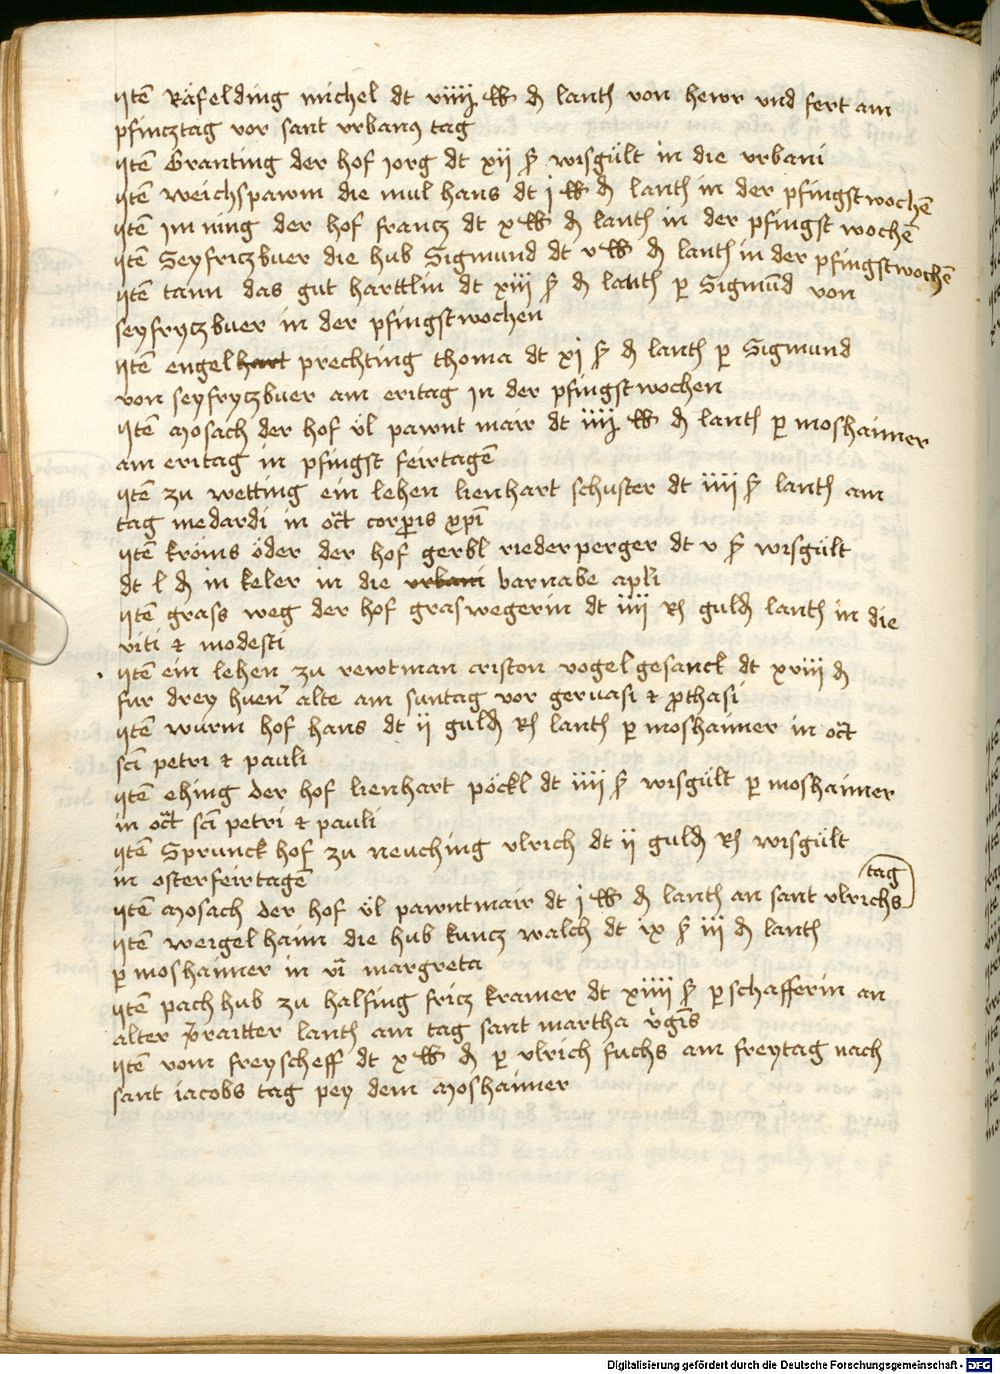 Itē Räfelding michel dt viiij ℔ ₰ lantħ von hewr vnd fert am
pfincztag vor sant vrbanꝰ tag
Itē Granting der hof Jorg dt xij ß wisgült in die vrbani
Itē weichspawm die mul hans dt j ℔ ₰ lantħ in der pfingstwochē
Itē Imning der hof francz dt x ℔ ₰ lantħ in der pfingst wochē
Itē Seyfriczbuer die hub Sigmund dt v ℔ ₰ lantħ in der pfingstwochē
Itē tann das gut harttlin dt xiij ß ₰ lantħ ꝑ Sigmūd von
seyfryczbuer in der pfingstwochen
Itē engelhart prechting thoma dt xj ß ₰ lantħ ꝑ Sigmund
von seyfryczbuer am eritag in der pfingstwochen
Itē Mosach der hof ül pawnt mair dt iiij ℔ ₰ lantħ ꝑ moshaimer
am eritag in pfingst feirtagē
Itē zu wetting ein lehen lienhart schuster dt iiij ß lantħ am
tag medardi in oct̄ corꝑis xp̄i
Itē kröms öder der hof gerbl riederperger dt v ß wisgült
dt l ₰ in keler in die vrbani barnabe apl̄i
Itē grass weg der hof graswegerin dt iiij Rħ guld̄ lantħ in die
viti et modesti
Itē ein lehen zu rewtman criston vogelgesanck dt xviij ₰
fur drey huen̄ alte am suntag vor geruasi et ꝓthasi
Itē wurm hof hans dt ij guld̄ Rħ lantħ ꝑ moshaimer in oct̄
sc̄i petri et pauli
Itē ehing der hof lienhart pöckl dt iiij ß wisgült ꝑ moshaimer
in oct̄ sc̄i petri et pauli
Itē Sprunck hof zu neuching vlrich dt ij guld̄ Rħ wisgült
in osterfeirtagē
Itē Mosach der hof ül pawntmair dt j ℔ ₰ lantħ an sant vlrichs tag
Itē weigelhaim die hub kuncz walch dt ix ß iij ₰ lantħ
ꝑ moshaimer in vi͞ margreta
Itē pachhub zu halfing fricz kramer dt xiiij ß ꝑ schafferin an
alter p̄raitter lantħ am tag sant martha v̓gīs
Itē vom freyscheff dt x ℔ ₰ ꝑ vlrich fuchs am freytag nach
sant iacobs tag pey dem Moshaimer
Digitalisierung gefördert durch die Deutsche Forschungsgemeinschaft - DFG